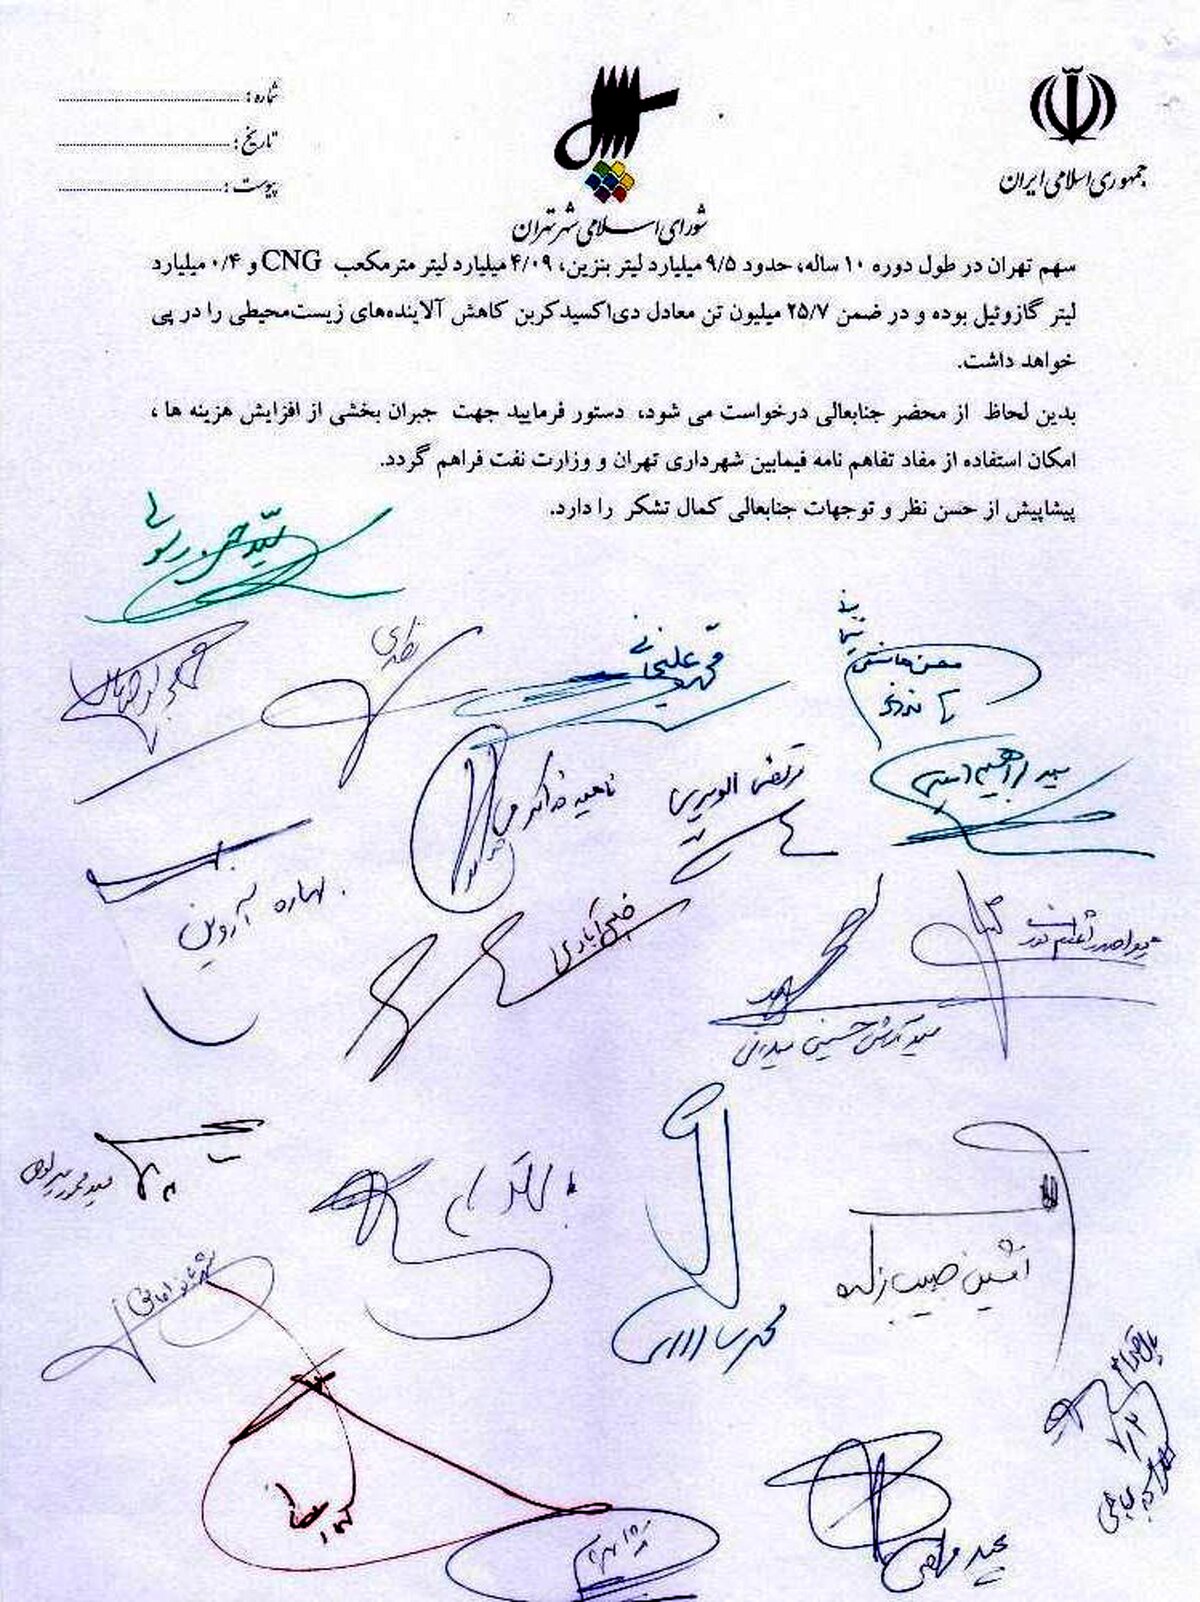 جمهوری اسلامی ایران
شورای اسلامی شهر تهران
شماره :
تاریخ :
پیوست :
سهم تهران در طول دوره ۱۰ ساله، حدود ۹/۵ میلیارد لیتر بنزین، ۴/۰۹ میلیارد لیتر مترمکعب CNG و ۰/۴ میلیارد
لیتر گازوئیل بوده و در ضمن ۲۵/۷ میلیون تن معادل دی‌اکسیدکربن کاهش آلاینده‌های زیست‌محیطی را در پی
خواهد داشت.
بدین لحاظ از محضر جنابعالی درخواست می شود، دستور فرمایید جهت جبران بخشی از افزایش هزینه ها ،
امکان استفاده از مفاد تفاهم نامه فیمابین شهرداری تهران و وزارت نفت فراهم گردد.
پیشاپیش از حسن نظر و توجهات جنابعالی کمال تشکر را دارد.
سید حسن رسولی
نظری
محمد علیخانی
محسن هاشمی
سید ابراهیم امینی
مرتضی الویری
ناهید خداکرمی
بهاره آروین
خلیل آبادی
زهرا صدراعظم نوری
سید آرش حسینی میلانی
سید محمود میرلوحی
الهام فخاری
محمد سالاری
افشین حبیب زاده
شهربانو امانی
مجید فراهانی